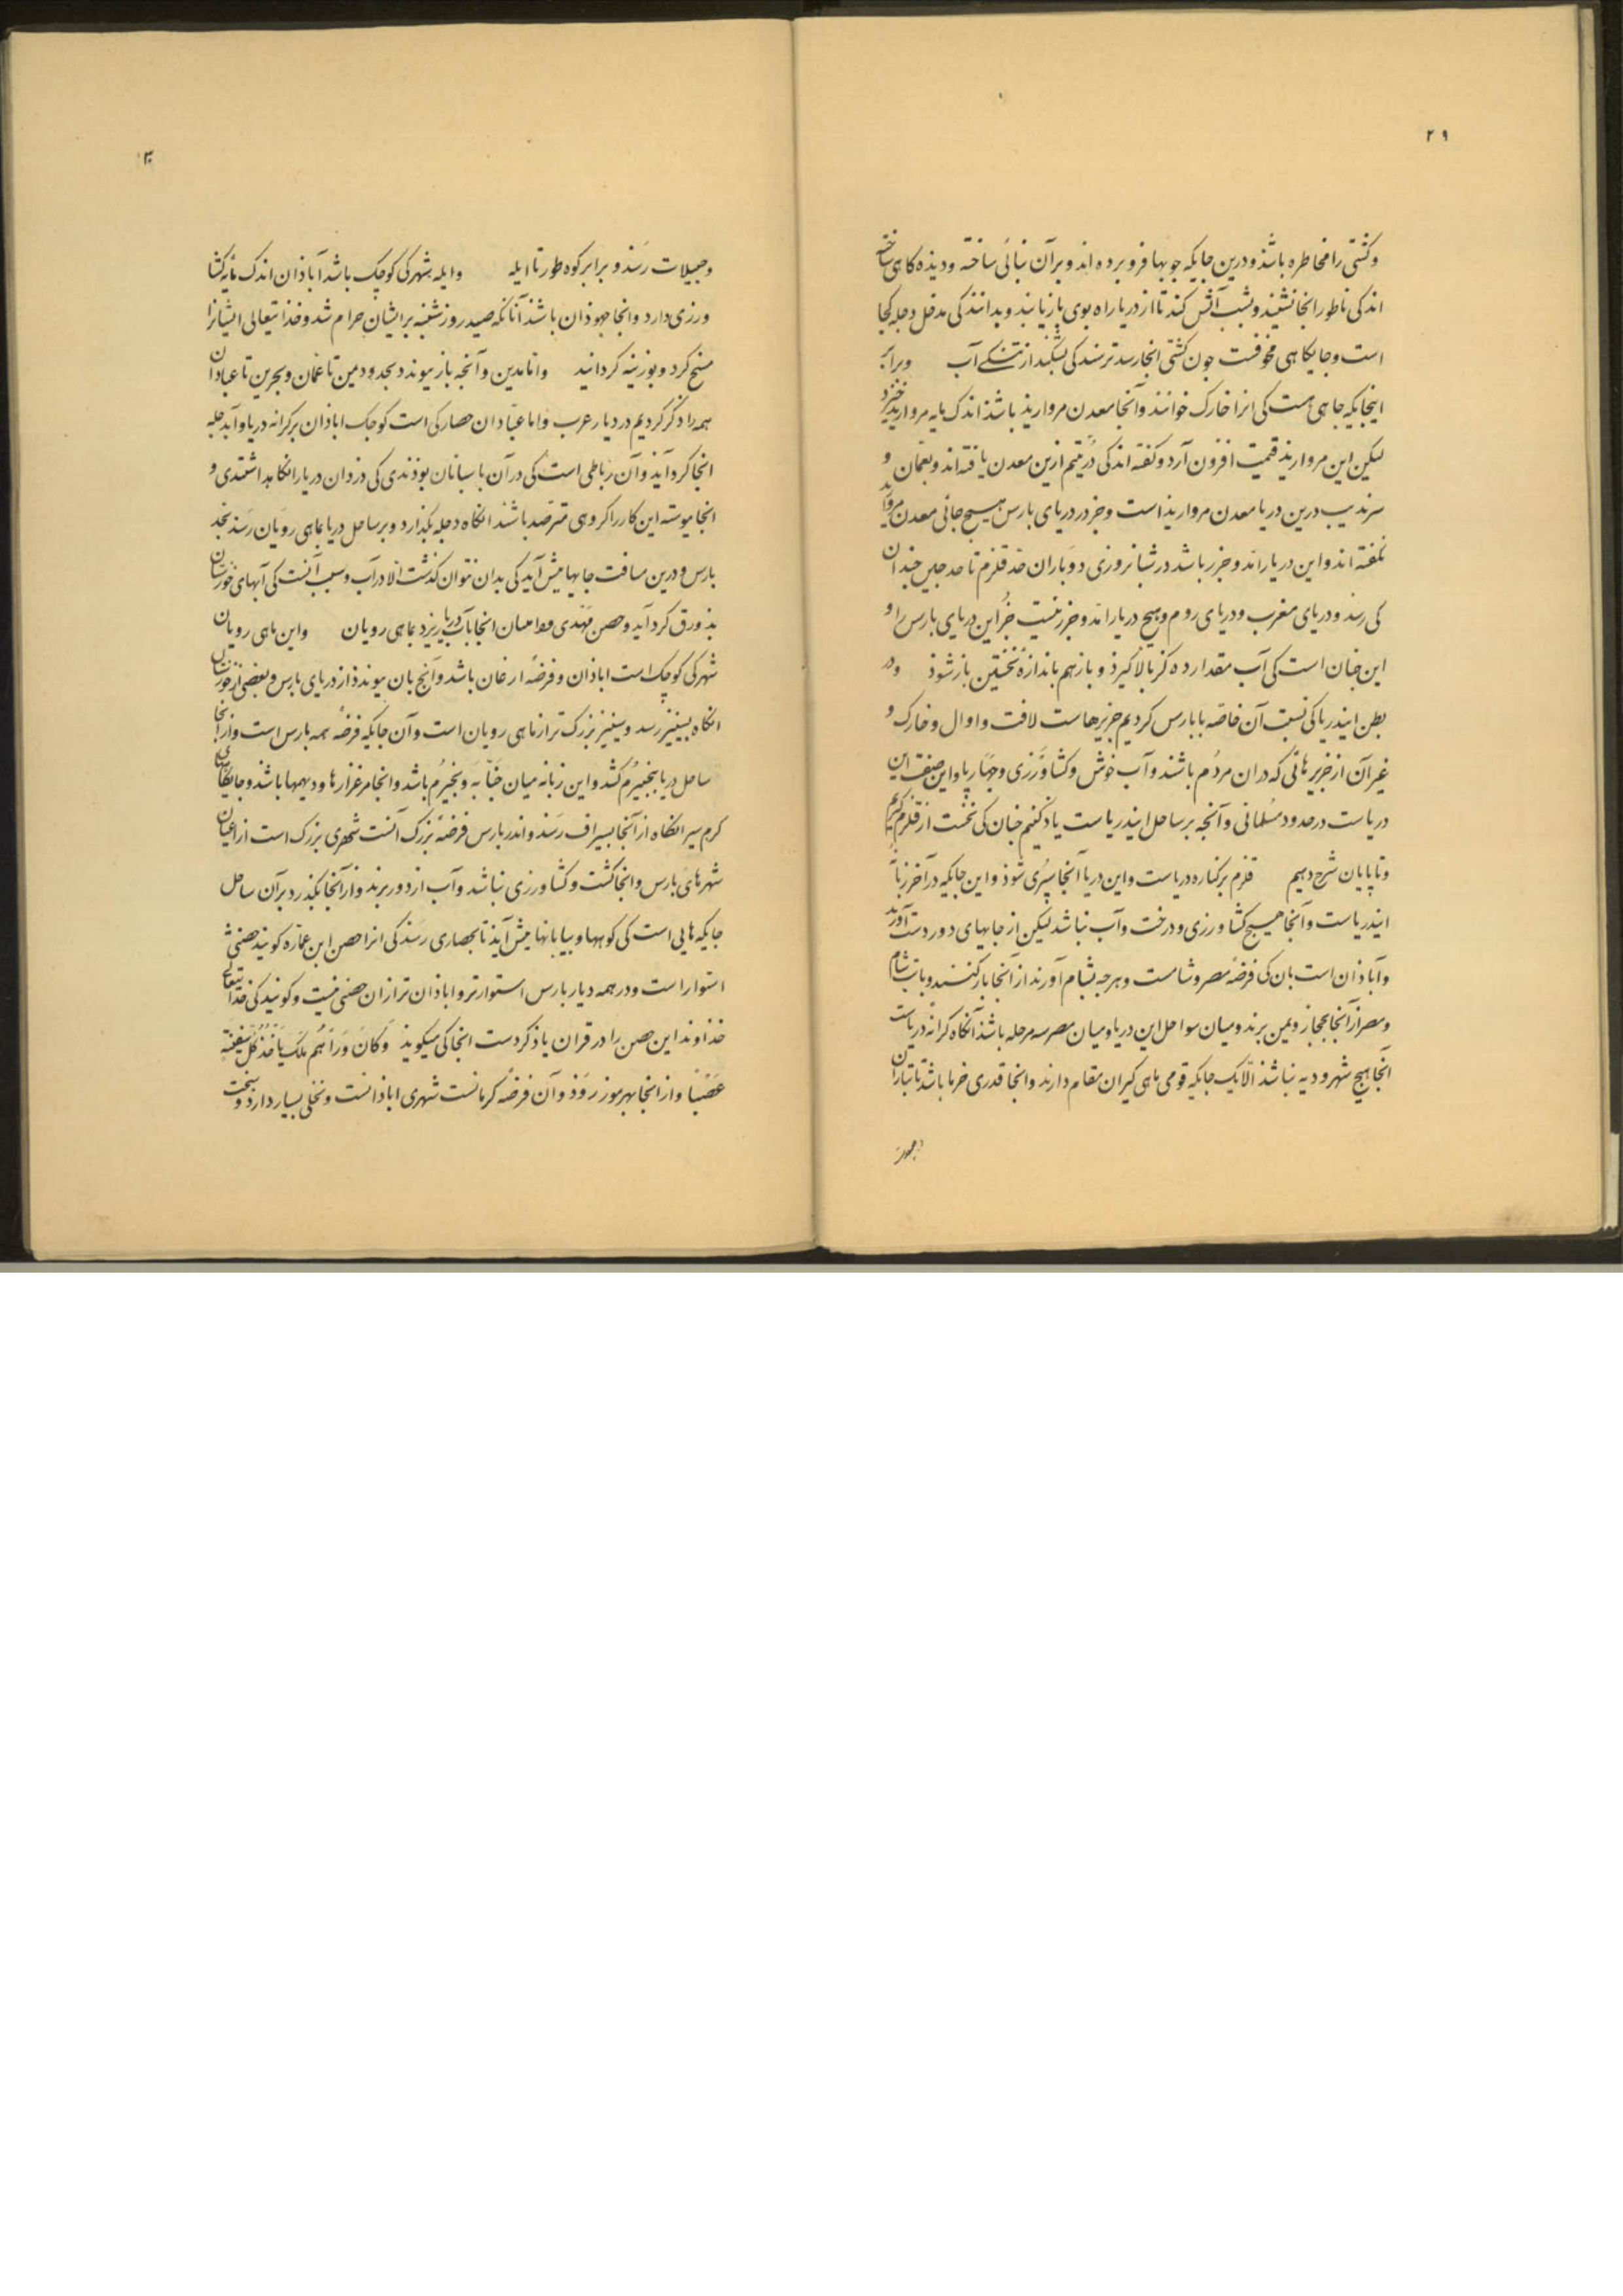 ۲۹
وکشتی را مخاطره باشذ و درین جایکه جوبها فرو برده اند و برآن بنائی ساخته و دیذه کاهی ساخته
اند کی ناطور انجا نشیند و بشب آتش کند تا از دریا راه بوی بازیابند و بدانند کی مدخل دجله کجا
است و جایکاهی مخوفست جون کشتی انجا رسد ترسند کی بشکند از تنکی آب و برابر
اینجایکه جاهی هست کی انرا خارک خوانند و آنجا معدن مروارید باشذ اندک مایه مروارید خیزد
لیکن این مروارید قیمت افزون آرد و کفته اند کی درّ یتیم ازین معدن یافته اند و بعمان و
سرندیب درین دریا معدن مروارید است و جز در دریای بارس هیسج جائی معدن مروارید
نکفته اند و این دریا را مدّ و جزر باشد در شبانروزی دوباران حدّ قلزم تا حد جین جندان
کی رسد و دریای مغرب و دریای روم و هیچ دریا را مدّ و جزر نیست جُز این دریای بارس را و
این جنان است کی آب مقدار ده کز بالا کیرذ و باز هم باندازهٔ نخستین بازشوذ و در
بطن ایندریا کی نسبت آن خاصّه با بارس کردیم جزیرهاست لافت و اوال و خارک و
غیر آن از جزیرهائی که دران مردُم باشند و آب خوش و کشاوَرزی و جهاربا و این صفت این
دریاست در حدود مُسلمانی و آنجه بر ساحل ایندریاست یاد کنیم جنان کی نخست از قلزم کیریم
و تا پایان شرح دهیم قلزم بر کناره دریاست و این دریا آنجا سپُری شوذ و این جایکه در آخر زبانهٔ
ایندریاست و آنجا هیسج کشاورزی و درخت و آب نباشد لیکن از جایهای دور دست آورند
و آباذان است بان کی فرضهٔ مصر و شامست و هرجه بشام آورند از آنجا بار کنند و باز شام
و مصر از آنجا بحجاز و یمن برند و میان سواحل این دریا و میان مصر سه مرحله باشد آنکاه کرانهٔ دریاست
آنجا هیج شهر و دیه نباشذ الّا یک جایکه قومی ماهی کیران مقام دارند و انجا قدری خرما باشد تا بتاران
۳۰
و جبیلات رسَند و برابر کوه طور تا ایله و ایله شهرکی کوجک باشد آباذان اندک مایه کشا
ورزی دارد و انجا جهوذان باشذ آنانکه صید روز شنبه برایشان حرام شد و خذا تعالی ایشانرا
مسخ کرد و بوزینه کردانید و امّا مدین و آنجه باز پیوندد بحدود یمن تا عُمان و بحرین تا عبادان
همه را ذکر کردیم در دیار عرب و امّا عبّادان حصارکی است کوجک اباذان بر کرانه دریا و آب دجله
انجا کردآید و آن رباطی است کی در آن باسبانان بوذندی کی دزدان دریا را نکاهداشتندی و
انجا پیوسته این کار را کروهی مترصّد باشند انکاه دجله بکذارد و بر ساحل دریا بماهی رویان رسَد بحد
بارس و درین مسافت جایها پیش آید کی بدان نتوان کذشت الّا در آب و سبب آنست کی آبهای خوزستان
بذورق کرد آید و حصن مهدی و باسیان انجا بآب دریا ریزد بماهی رویان و این ماهی رویان
شهرکی کوچک است اباذان و فرضهٔ ارغان باشد و آنج بان پیوندذ از دریای بارس و بعضی از خوزستان
انکاه بسینیز رسد و سینیز بزرک تر از ماهی رویان است و آن جایکه فرضهٔ همه بارس است و از انجا
ساحل دریا بنجیرُم کشد و این زبانه میان جَنّابَه و نجیرُم باشد و انجا مرغزارها و دیهها باشد و جایکاهی
کرم سیر انکاه از آنجا بسیراف رَسَد و اندر بارس فرضهٔ بزرک آنست شهری بزرک است از اعیان
شهرهای بارس و انجا کشت و کشاورزی نباشد و آب از دور برند و از آنجا بکذرد بر آن ساحل
جایکه هایی است کی کوهها و بیابانها پیش آید تا بحصاری رسَد کی انرا حصن ابن عمّاره کویند حصنی
استوار است و در همه دیار بارس استوارتر و اباذان تر ازان حصنی نیست و کویند کی خدای تعالی
خذاوند این حصن را در قران یاذ کردست انجا کی میکوید وَ کانَ وَرَاءَهُم مَلِکٌ یَاخُذُ کُلَّ سَفِینَةٍ
غَصْبًا و از انجا بهرموز رَوَذ و آن فرضهٔ کرمانست شهری اباذانست و نخلی بسیار دارد و سخت